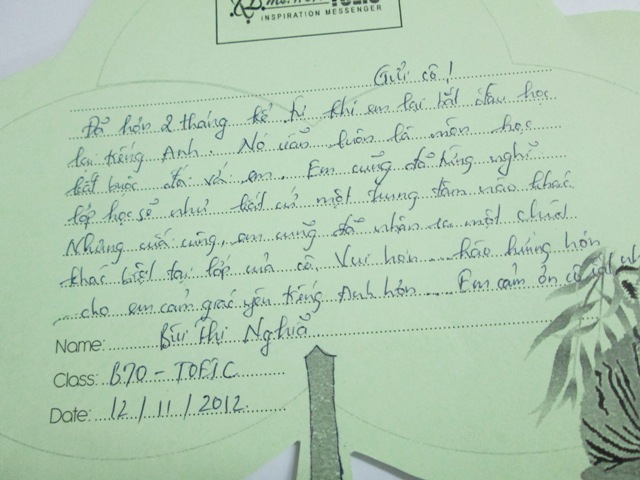 TOEIC
INSPIRATION MESSENGER
Gửi cô!
Đã hơn 2 tháng kể từ khi em lại bắt đầu học
lại tiếng Anh. Nó vẫn luôn là môn học
bắt buộc đối với em. Em cũng đã từng nghĩ
lớp học sẽ như bất cứ một trung tâm nào khác.
Nhưng cuối cùng, em cũng đã nhận ra một chút
khác biệt tại lớp của cô. Vui hơn... hào hứng hơn
... cho em cảm giác yêu tiếng Anh hơn... Em cảm ơn cô
Name: Bùi Thị Nghĩa
Class: B70 - TOEIC
Date: 12 / 11 / 2012